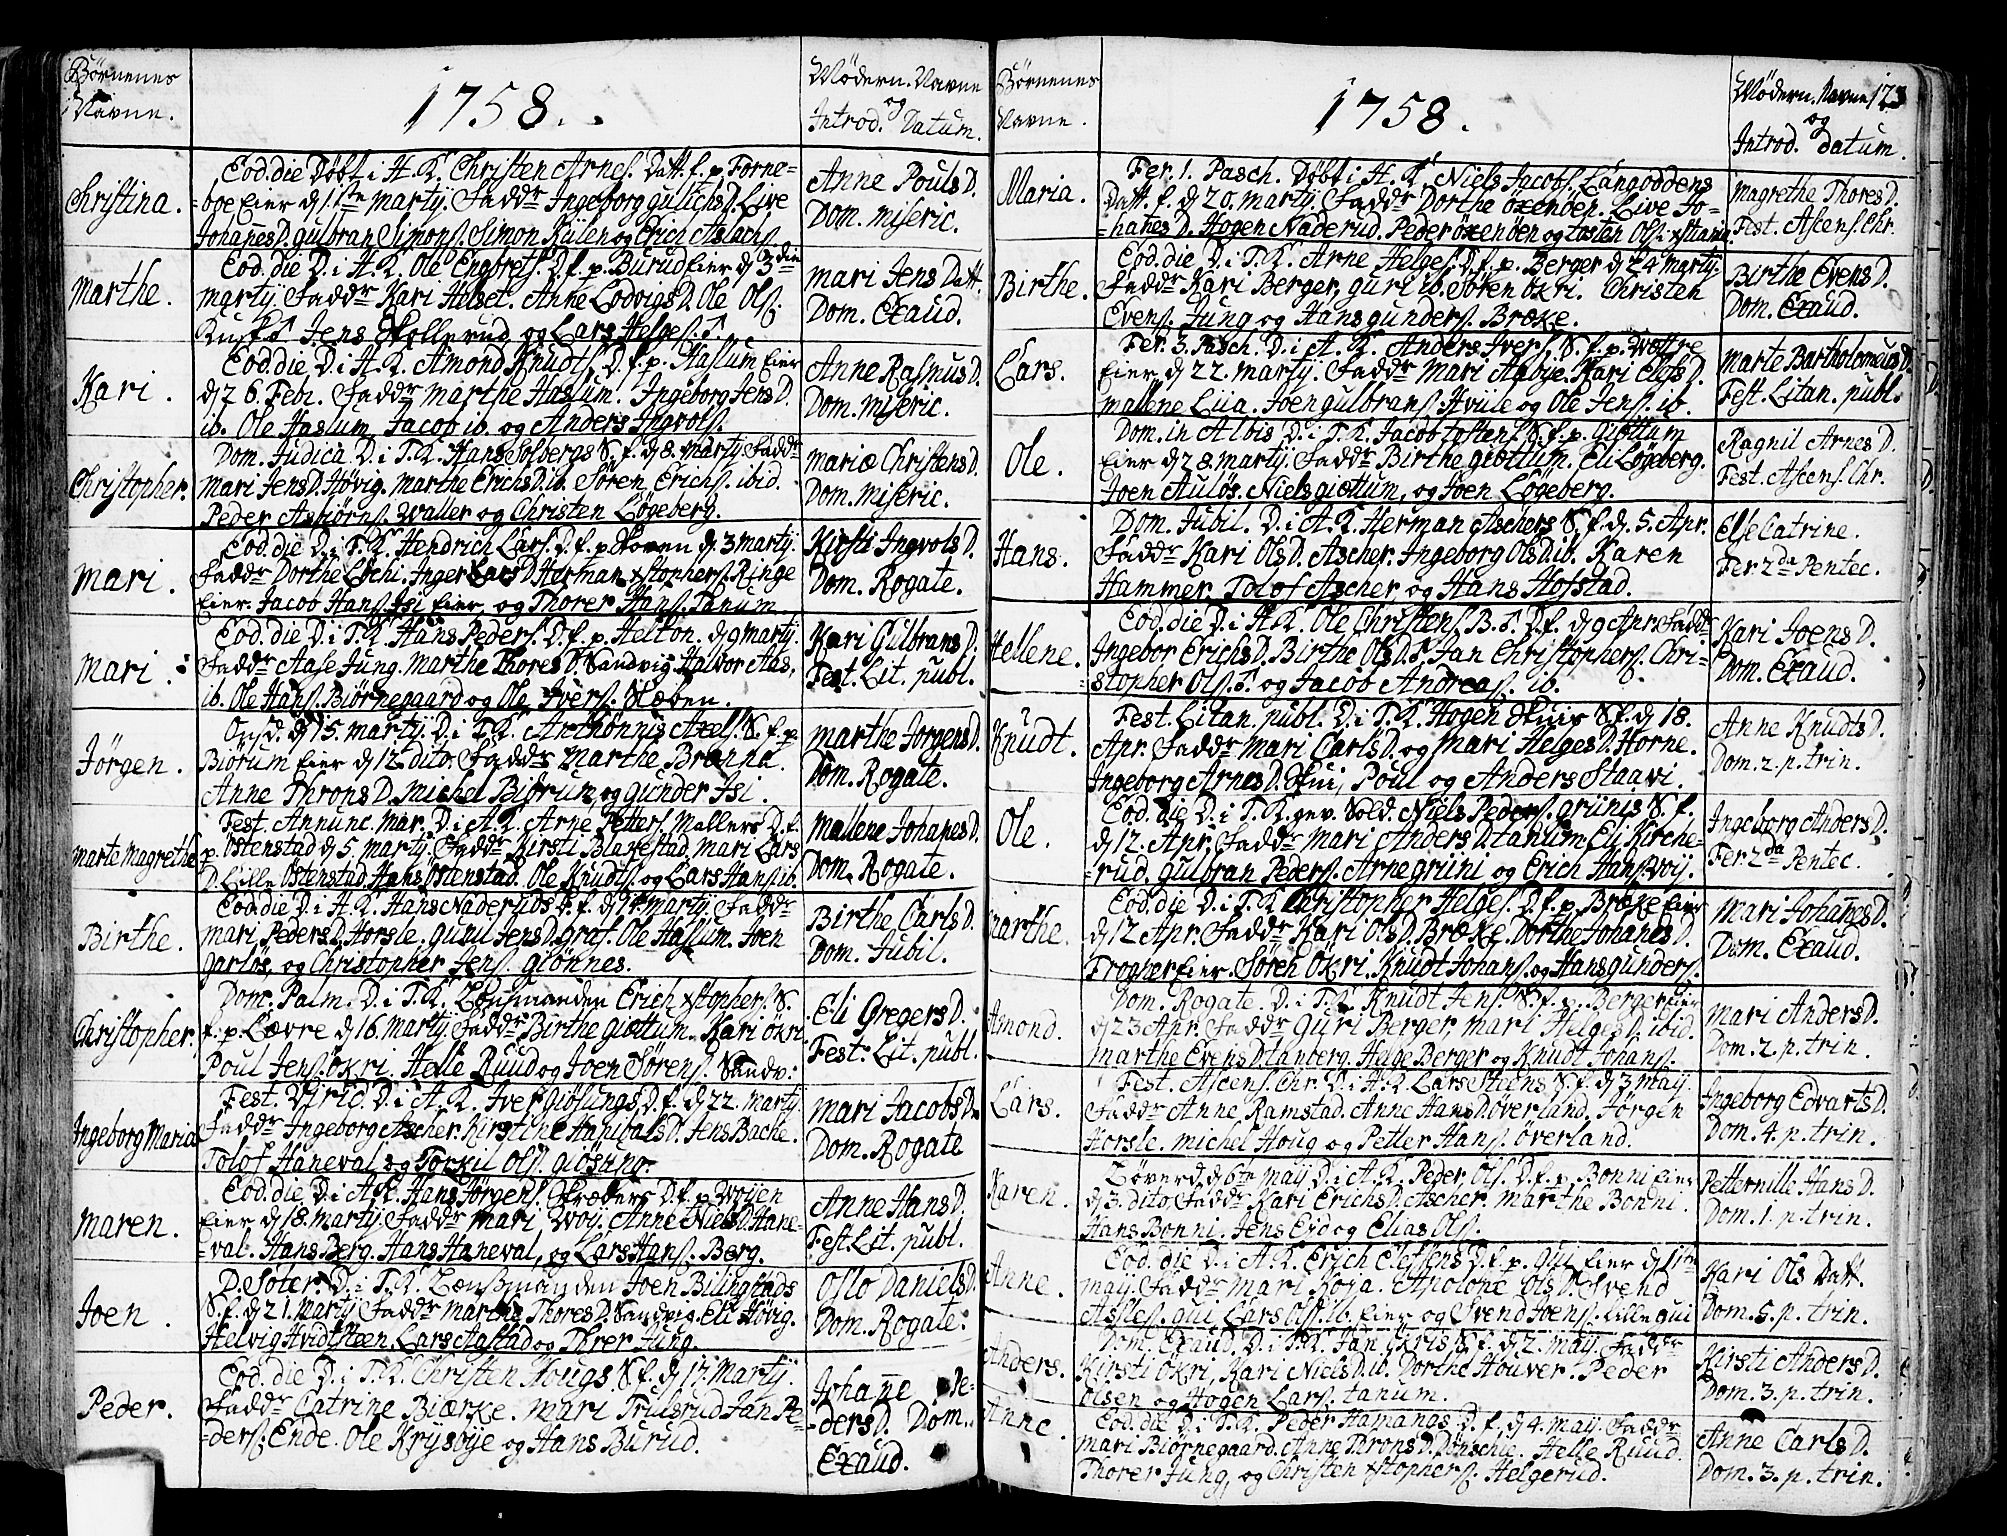 Børnenes
Navne.
1758.
Mødern. Navne
og
Introd. Datum.
Christina.
Eod. die Døbt i H. K. Christen Arnes. Datt. f. p. Forne-
=boe Eier d. 1ste martij. Fadd.r Ingeborg Gulichs D. Live
Johannes D. Gulbran Simons. Simon Kiilen og Erich Aslachs.
Anne Pouls D.
Dom. miseric.
Marthe.
Eod. die D. i H. K. Ole Engbrets. D. f. p. Burud Eier d. 3die
martij. Fadd.r Kari Helset. Anne Lodvigs D. Ole Ols.
Jens Skollerud og Lars Helges.
Mari Jens Datt.
Dom. Exaud.
Kari.
Eod. die D. i H. K. Amond Knudts. D. f. p. Haslum Eier
d. 26 Febr. Fadd.r Marthe Haslum. Ingeborg Jens D.
ib. Ole Haslum Jacob ib. og Anders Ingvols.
Anne Rasmus D.
Dom. miseric.
Christopher.
Dom. Judica D. i T. K. Hans Solbergs S. f. d. 8. martij Fadd.r
Mari Jens D. Høvig. Marthe Erichs D. ib. Søren Erichs. ibid.
Peder Asbiørns. Waller og Christen Løgeberg.
Mariæ Christens D.
Dom. miseric.
Mari.
Eod. die D. i T. K. Hendrich Lars. D. f. p. Skoven d. 3 martij.
Fadd.r Dorthe Lochi. Inger Lars D. Herman xstophers. Ringe
Eier. Jacob Hans. Isi Eier, og Thorer Hans. Tanum.
Kirsti Ingvols D.
Dom. Rogate.
Mari.
Eod. die D. i T. K. Hans Peders. D. f. p. Helton. d. 9 martij.
Fadd.r Aase Jung. Marthe Thores D. Sandvig. Halvor Aas,
ib. Ole Hans. Biørnegaard og Ole Ivers. Slæben.
Kari Gulbrans D.
Fest. Lit. publ.
Jørgen.
Onsd. d. 15. martij. D. i T. K. Anthonnis Axels. S. f. p.
Biørum Eier d. 12 dito. Fadd.r Marthe Brønna.
Anne Throns D. Michel Biørum og Gunder Isi.
Marthe Jørgens D.
Dom. Rogate.
Marte Magrethe
Fest. Annunc. Mar. D. i A. K. Arne Petters. Mallers D. f.
p. Østenstad d. 5. martij. Fadd.r Kirsti Blakestad. Mari Lars
D. Lille Østenstad. Hans Østenstad. Ole Knudts. og Lars Hans. ib.
Mallene Johanes D.
Dom. Rogate.
Birthe.
Eod. die D. i H. K. Hans Naderuds D. f. d. 14. martij Fadd.r
Mari Peders D. Horsle. Gunil Jens D. Graf. Ole Haslum. Joen
Jarløs, og Christopher Jens. Giønnes.
Birthe Carls D.
Dom. Jubil.
Christopher.
Dom. Palm. D. i T. K. Lensmanden Erich xstophers. S.
f. p. Løvre d. 16. martij. Fadd.r Birthe Giøttum. Kari Økri
Poul Jens. Økri. Helle Ruud og Joen Sørens. Sandv:
Eli Gregers D.
Fest. Lit. publ.
Ingeborg Maria
Fest. Virid. D. i A. K. Iver Giøsungs D. f. d. 22. martij.
Fadd.r Ingeborg Ascher. Kirstine Hanibals D. Jens Bache.
Tolof Haneval og Torkil Ols. Giøsung.
Mari Jacobs D.
Dom. Rogate
Maren.
Eod. die D. i A. K. Hans Jørgens. Skræders D. f. p. Woyen
Eier d. 18. martij Fadd.r Mari Woij. Anne Niels D. Hane-
=val. Hans Berg. Hans Haneval, og Lars Hans. Berg.
Anne Hans D.
Fest. Lit. publ.
Joen.
D. Søter. D. i T. K. Lænsmanden Joen Bilingstads
S. f. d. 21. martij Fadd.r Marthe Thores D. Sandvig. Eli Høvig.
Helvig Hvidtsteen. Lars Aastad og Threr Jung.
Oslo Daniels D.
Dom. Rogate.
Peder.
Eod. die D. i T. K. Christen Hougs S. f. d. 17. martij.
Fadd.r Catrine Biærke. Mari Trulsrud Jan Pe-
=ders. Ende. Ole Krysbye og Hans Burud.
Johanne Pe-
=ders D. Dom.
Exaud.
Børnenes
Navne.
1758.
Mødern. Navne 123
og
Introd. Datum.
Maria.
Fer. 1. Pasch. Døbt i H. K. Niels Jacobs. Langoddens
Datt. f. d. 20. martij. Fadd.r Dorthe Oxenøen. Live Jo-
=hanes D. Hogen Naderud. Peder Øxenøen og Tosten Ols. i xstiania
Magrethe Thores D.
Fest. Ascens. Chr.
Birthe.
Eod. die D. i T. K. Arne Helges. D. f. p. Berger d. 24 martij.
Fadd.r Kari Berger, Guri ib. Søren Økri. Christen
Evens. Jung og Hans Gunders. Bræke.
Birthe Evens D.
Dom. Exaud.
Lars.
Fer. 3. Pasch. D. i A. K. Anders Ivers. S. f. p. Wøttre
Eier d. 22. martij. Fadd.r Mari Aabye. Kari Elefs D.
Mallene Liia. Joen Gulbrans. Hviile og Ole Jens. ib.
Marte Bartholomeus D.
Fest. Litan. publ.
Ole.
Dom. in Albis D. i T. K. Jacob Tostens. S. f. p. Giøttum
Eier d. 28. martij. Fadd.r Birthe Giøttum. Eli Løgeberg.
Joen Auløs. Niels Giøttum, og Joen Løgeberg.
Ragnil Arnes D.
Fest. Ascens. Chr.
Hans.
Dom. Jubil. D. i A. K. Herman Aschers S. f. d. 5. Apr.
Fadd.r Kari Ols D. Ascher. Ingeborg Ols D. ib. Karen
Hammer. Tolof Ascher og Hans Hofstad.
Else Catrine.
Fer. 2da Pentec.
Hellene.
Eod. die D. i H. K. Ole Christens. B. T. D. f. d. 9 Apr. Fadd.r
Ingebor Erichs D. Birthe Ols D. T. Jan Christophers. Chri-
=stopher Ols. T. og Jacob Andreas. ib.
Kari Joens D.
Dom. Exaud.
Knudt.
Fest. Litan. publ. D. i T. K. Hogen Skuis S. f. d. 18.
Apr. Fadd.r Mari Carls D. og Mari Helges D. Horne.
Ingeborg Arnes D. Skui, Poul og Anders Staavi.
Anne Knudts D.
Dom. 2. p. trin.
Ole.
Eod. die D. i T. K. gev. Sold. Niels Peders. Griinis S. f.
d. 12. Apr. Fadd.r Mari Anders D. Tanum. Eli Kirche-
=rud. Gulbran Peders. Arne Griini og Erich Hans. Woij.
Ingeborg Anders D.
Fer 2da Pentec.
Marthe.
Eod. die D. i T. K. Christopher Helges. D. f. p. Bræke Eier
d. 12 Apr. Fadd.r Kari Ols D. Bræke. Dorthe Johanes D.
Frogner Eier. Søren Økri. Knudt Johans. og Hans Gunders.
Mari Johannes D.
Dom. Exaud.
Amond.
Dom. Rogate. D. i T. K. Knudt Jens. S. f. p. Berger Eier
d. 23 Apr. Fadd.r Guri Berger Mari Helges D. ibid.
Marthe Evens D. Tanberg. Helge Berger og Knudt Johans.
Mari Anders D.
Dom. 2. p. trin.
Lars.
Fest. Ascens. Chr. D. i H. K. Lars Steens S. f. d. 3 maij.
Fadd.r Anne Ramstad. Anne Hans D. Øverland. Jørgen
Horsle. Michel Houg og Petter Hans. Øverland.
Ingeborg Edvarts D.
Dom. 4. p. trin.
Karen.
Løverd. d. 6te maij D. i A. K. Peder Ols. D. f. p. Bonni Eier
d. 3. dito, Fadd.r Kari Erichs D. Ascher Marthe Bonni.
Hans Bonni, Jens Eid og Elias Ols.
Petternille Hans D.
Dom. 1. p. trin.
Anne.
Eod. die D. i A. K. Erich Elefsens D. f. p. Gui Eier d. 1ste
maij. Fadd.r Mari Koja. Apolone Ols D. Svend
Asles. Gui Lars Ols. ib. Eier og Svend Joens. Lille Gui
Kari Ols Datt.
Dom. 5. p. trin.
Anders.
Dom. Exaud. D. i T. K. Jan Økris S. f. d. 2. maij Fadd.r
Kirsti Økri, Kari Niels D. ib. Dorthe Houver. Peder
Olsen og Hogen Lars. Tanum.
Kirsti Anders D.
Dom. 3. p. trin.
Anne.
Eod. die D. i T. K. Peder Hamangs D. f. d. 4. maij. Fadd.r
Mari Biørnegaard. Anne Throns D. Dønschie. Helle Ruud.
Thorer Jung, og Christen xstophers. Helgerud.
Anne Carls D.
Dom. 3. p. trin.